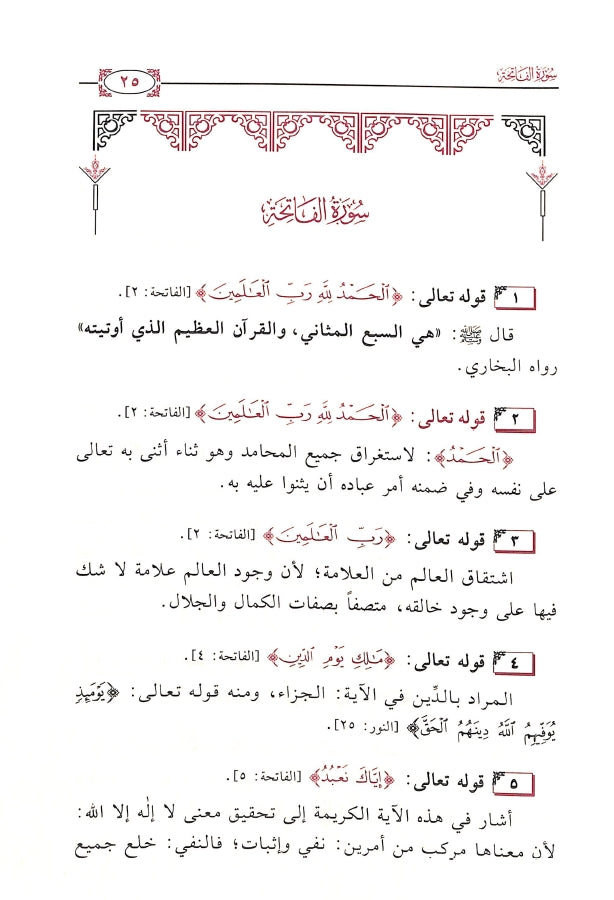 سُورَةُ الفَاتِحَة
٢٥
سُورَةُ الفَاتِحَة
١ قوله تعالى: ﴿الْحَمْدُ لِلَّهِ رَبِّ الْعَالَمِينَ﴾ [الفاتحة: ٢].
قال ﷺ: «هي السبع المثاني، والقرآن العظيم الذي أوتيته»
رواه البخاري.
٢ قوله تعالى: ﴿الْحَمْدُ لِلَّهِ رَبِّ الْعَالَمِينَ﴾ [الفاتحة: ٢].
﴿الْحَمْدُ﴾: لاستغراق جميع المحامد وهو ثناء أثنى به تعالى
على نفسه وفي ضمنه أمر عباده أن يثنوا عليه به.
٣ قوله تعالى: ﴿رَبِّ الْعَالَمِينَ﴾ [الفاتحة: ٢].
اشتقاق العالم من العلامة؛ لأن وجود العالم علامة لا شك
فيها على وجود خالقه، متصفاً بصفات الكمال والجلال.
٤ قوله تعالى: ﴿مَالِكِ يَوْمِ الدِّينِ﴾ [الفاتحة: ٤].
المراد بالدِّين في الآية: الجزاء، ومنه قوله تعالى: ﴿يَوْمَئِذٍ
يُوَفِّيهِمُ اللَّهُ دِينَهُمُ الْحَقَّ﴾ [النور: ٢٥].
٥ قوله تعالى: ﴿إِيَّاكَ نَعْبُدُ﴾ [الفاتحة: ٥].
أشار في هذه الآية الكريمة إلى تحقيق معنى لا إلٰه إلا الله:
لأن معناها مركب من أمرين: نفي وإثبات؛ فالنفي: خلع جميع